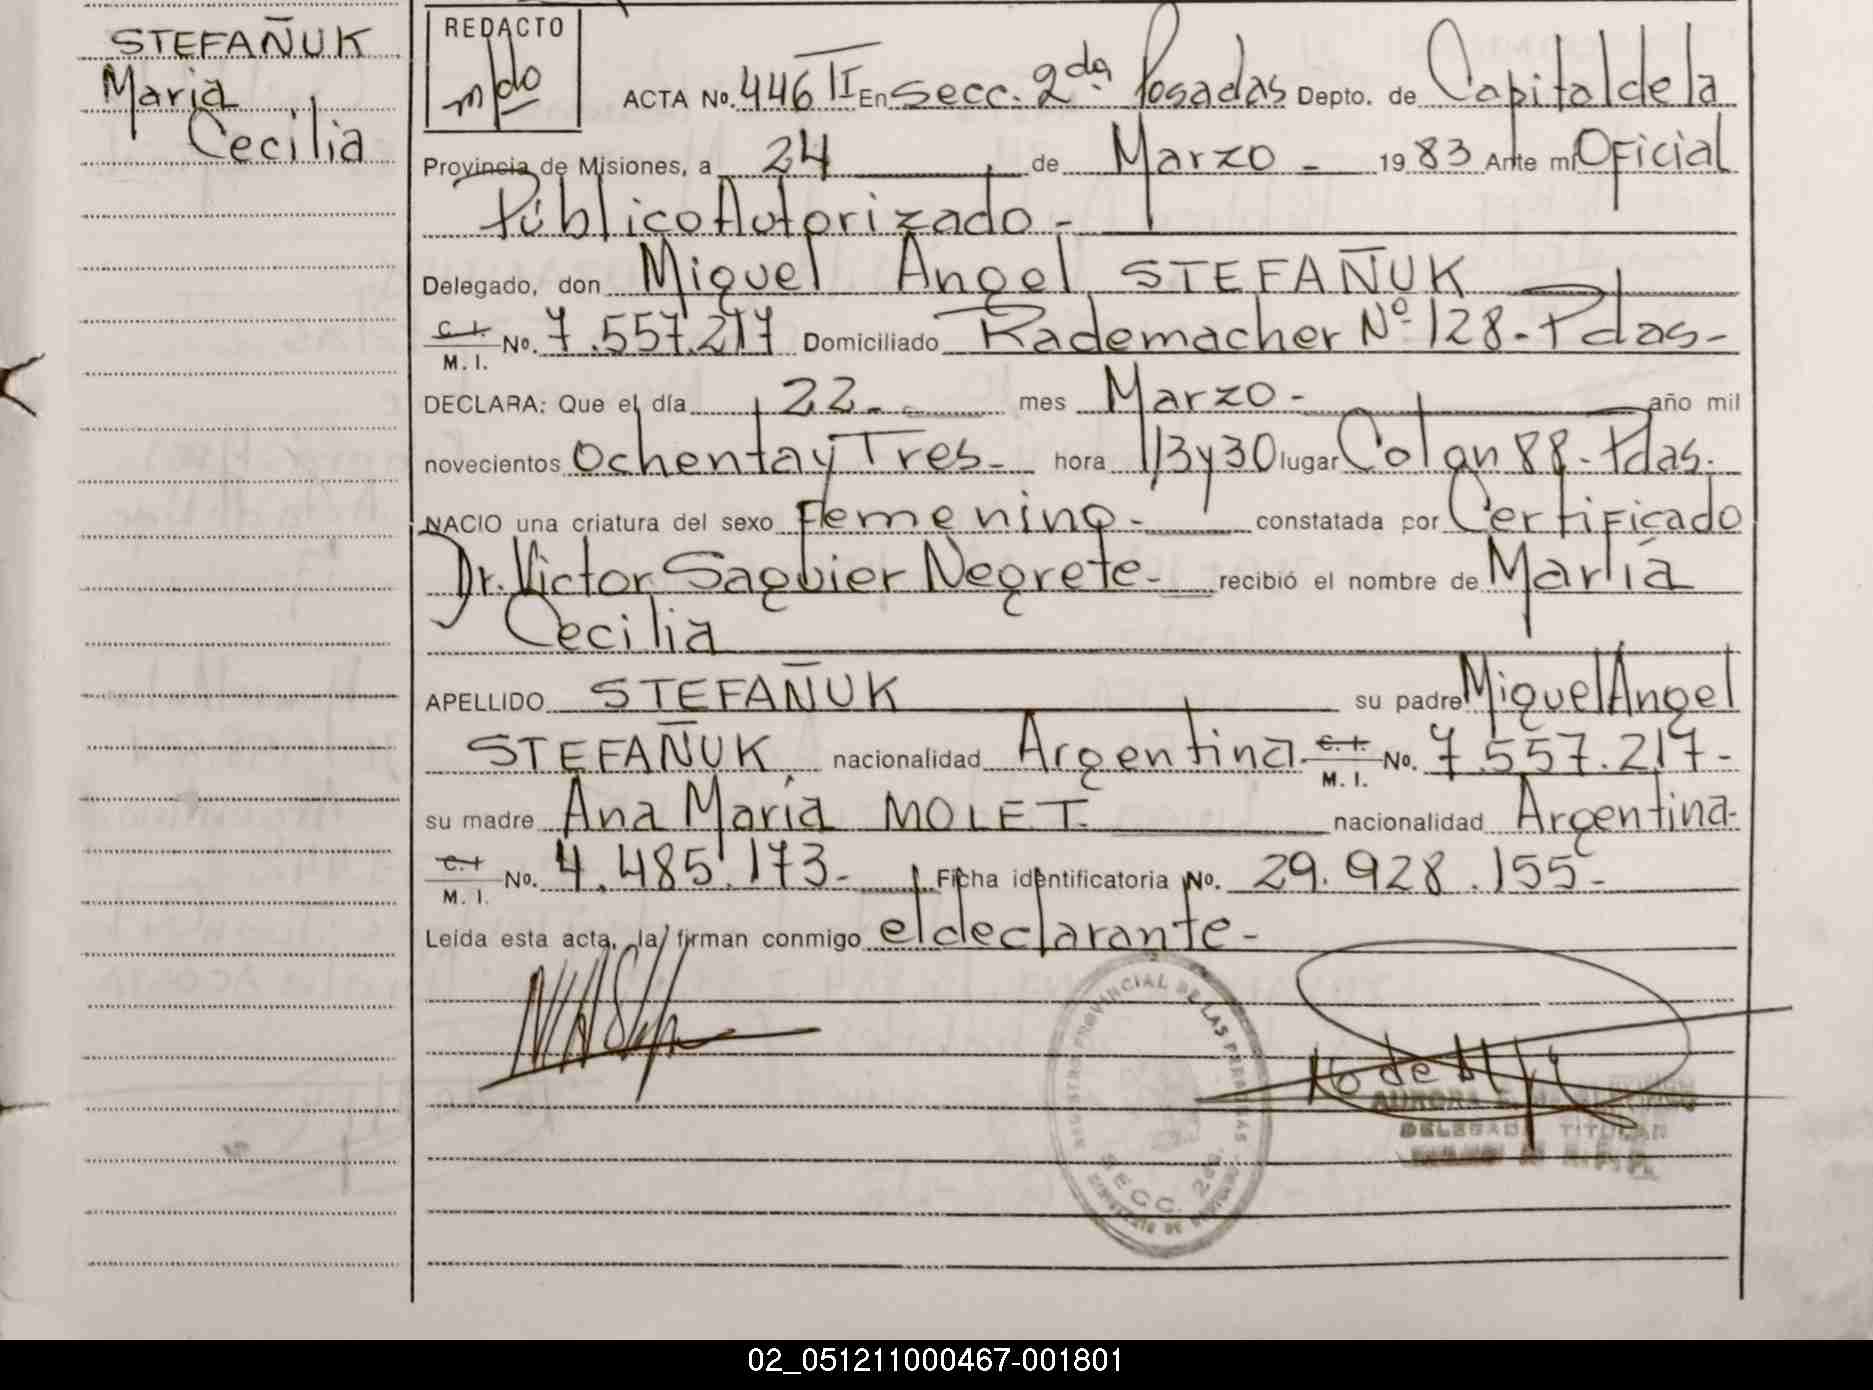 STEFAÑUK
Maria
Cecilia
REDACTO
ACTA No. 446 TI En Secc. 2da Posadas Depto. de Capital de la
Provincia de Misiones, a 24 de Marzo - 1983 Ante mi Oficial
Público Autorizado -
Delegado, don Miguel Angel STEFAÑUK
C. I. M. I. No. 7.557.217 Domiciliado Rademacher Nº 128 - Pdas -
DECLARA: Que el día 22 - mes Marzo - año mil
novecientos Ochenta y Tres - hora 13 y 30 lugar Colon 88 - Pdas.
NACIO una criatura del sexo Femenino - constatada por Certificado
Dr. Victor Saguier Negrete - recibió el nombre de María
Cecilia
APELLIDO STEFAÑUK su padre Miguel Angel
STEFAÑUK nacionalidad Argentina - C. I. M. I. No. 7.557.217 -
su madre Ana María MOLET nacionalidad Argentina -
C. I. M. I. No. 4.485.173 - Ficha identificatoria No. 29.928.155 -
Leída esta acta, la firman conmigo el declarante -
REGISTRO PROVINCIAL DE LAS PERSONAS
SECC. 2da.
AURORA
DELEGADA TITULAR
02_051211000467-001801